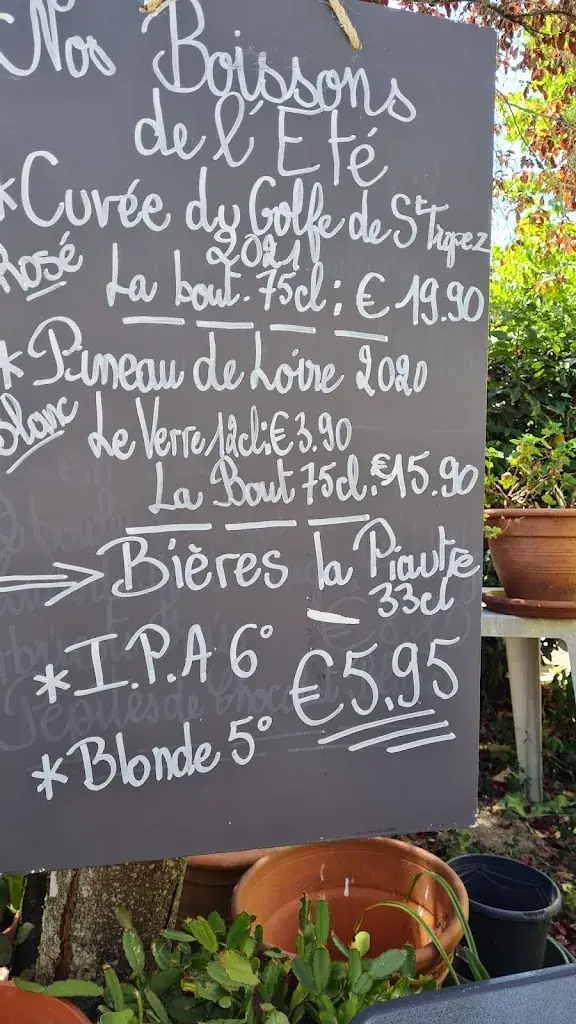 Nos Boissons
de l'Eté
*Cuvée du Golfe de St Tropez
2021
Rosé
La bout. 75cl : € 19.90
*Pineau de Loire 2020
Blanc
Le Verre 12cl: € 3.90
La Bout 75cl. € 15.90
Bières la Piautre
33cl
*I.P.A 6°
€5.95
*Blonde 5°